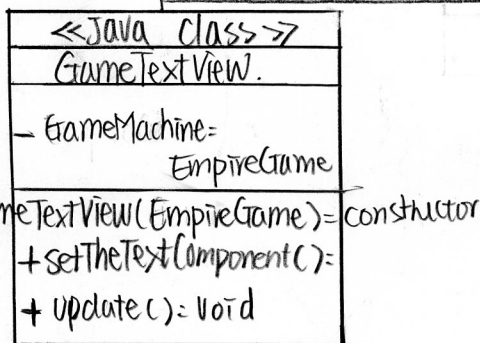 <<Java class>>
GameTextView.
- GameMachine:
EmpireGame
meTextView(EmpireGame): constructor
+ setTheTextComponent():
+ update(): void